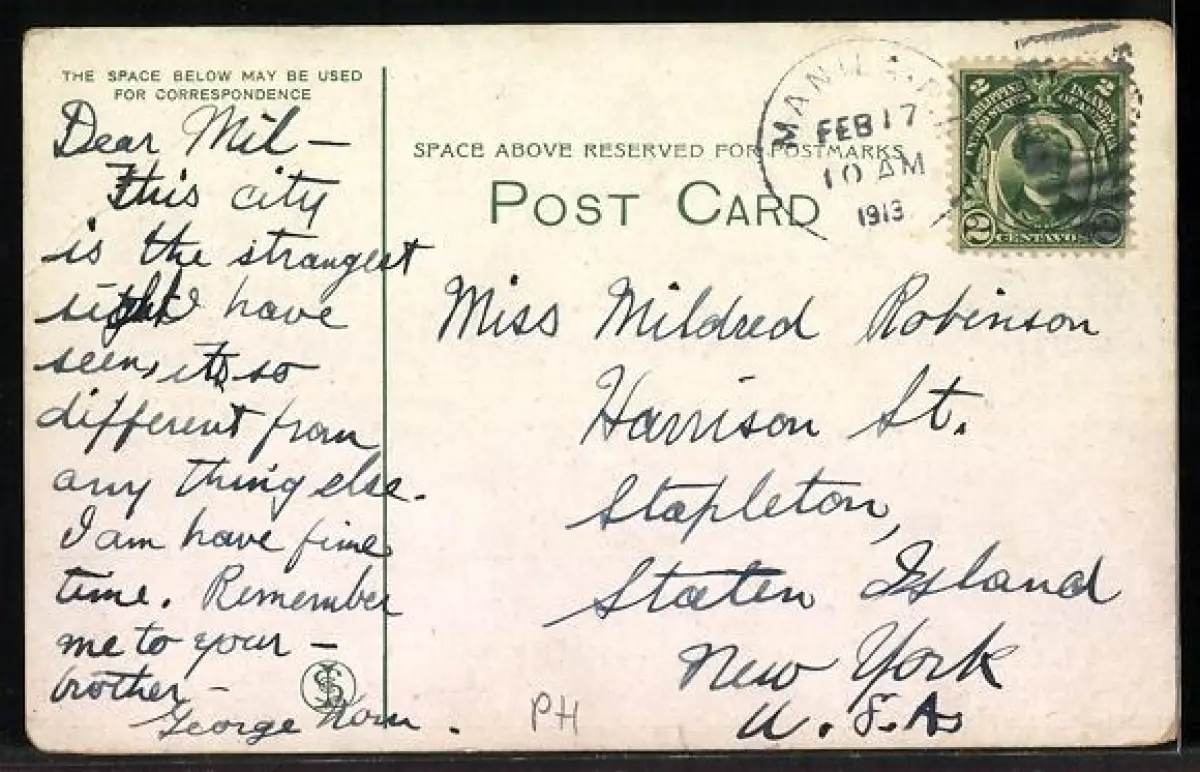 THE SPACE BELOW MAY BE USED
FOR CORRESPONDENCE
Dear Mil —
This city
is the strangest
sight I have
seen, its so
different from
any thing else.
I am have fine
time. Remember
me to your —
brother —
George
SPACE ABOVE RESERVED FOR POSTMARKS
POST CARD
MANILA, P.
FEB 17
10 AM
1913
2 2
PHILIPPINE ISLANDS
UNITED STATES OF AMERICA
2 CENTAVOS 2
Miss Mildred Robinson
Harrison St.
Stapleton,
Staten Island
New York
U.S.A.
PH